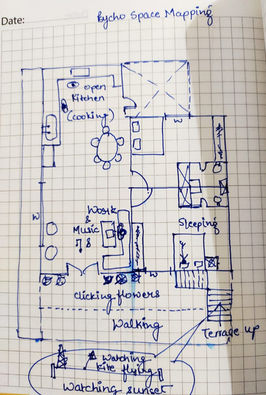 Date:
Pycho Space Mapping
open
Kitchen
(cooking)
W
Work
&
Music
W
Sleeping
W
clicking flowers
Walking
Terrace up
Watching
Kite flying
Watching sunset